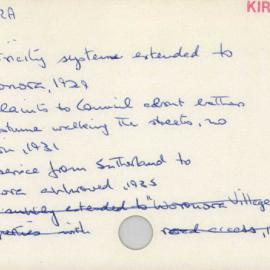 RA
KIR
tricity systems extended to
onora, 1929
laints to Council about bathers
stume walking the streets, no
on, 1931
service from Sutherland to
ora approved, 1935
supply extended to "Woronora Village
perties with road access, 1